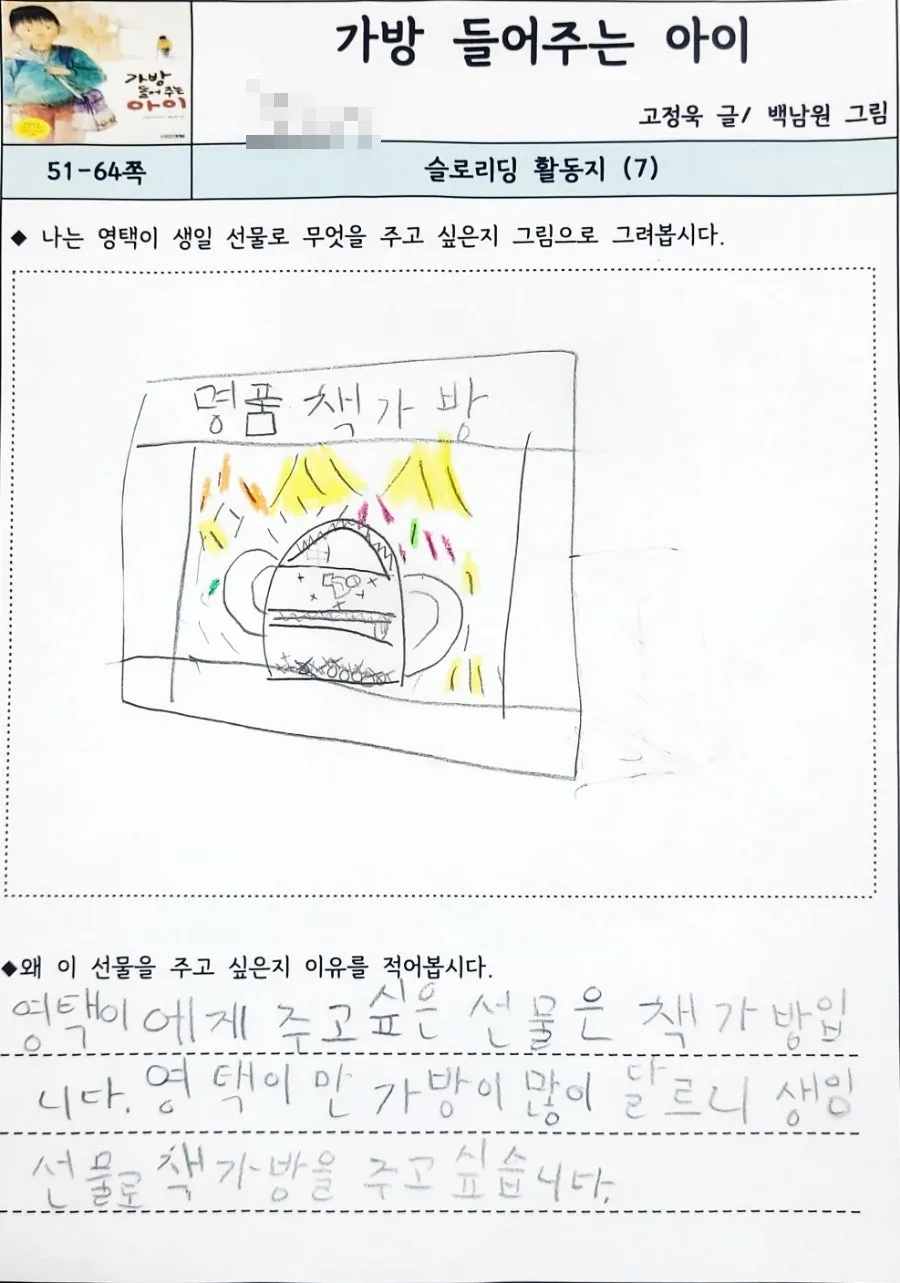 가방 들어주는 아이
가방
들어주는
아이
고정욱 글/ 백남원 그림
51-64쪽
슬로리딩 활동지 (7)
◆ 나는 영택이 생일 선물로 무엇을 주고 싶은지 그림으로 그려봅시다.
명품 책가방
◆왜 이 선물을 주고 싶은지 이유를 적어봅시다.
영택이에게 주고싶은 선물은 책가방입
니다. 영택이만 가방이 많이 달르니 생임
선물로 책가방을 주고 싶습니다.